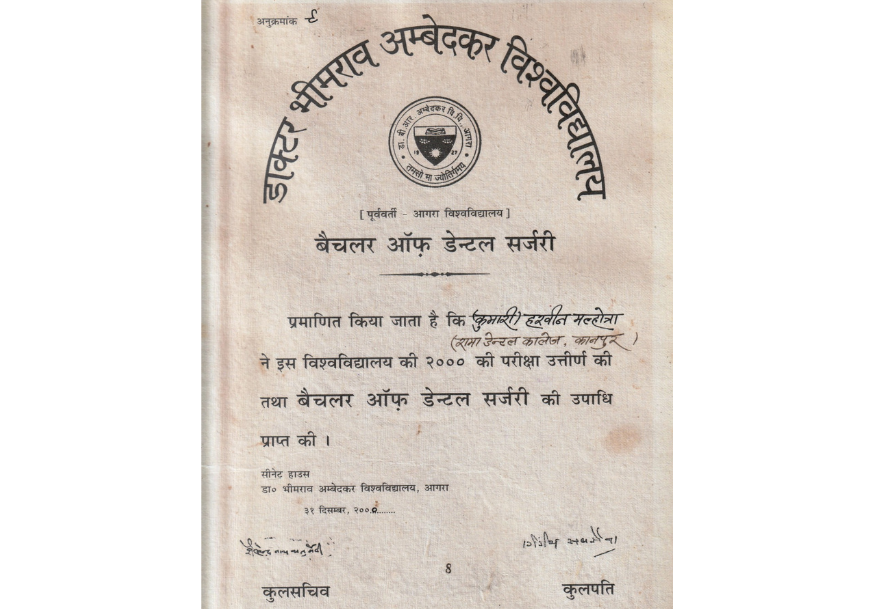 अनुक्रमांक ६
डाक्टर भीमराव अम्बेदकर विश्वविद्यालय
डा. बी. आर. अम्बेदकर वि. वि., आगरा
1927
तमसो मा ज्योतिर्गमय
[ पूर्ववर्ती - आगरा विश्वविद्यालय ]
बैचलर ऑफ़ डेन्टल सर्जरी
प्रमाणित किया जाता है कि (कुमारी) हरवीन मल्होत्रा
(रामा डेन्टल कालेज, कानपुर)
ने इस विश्वविद्यालय की २००० की परीक्षा उत्तीर्ण की
तथा बैचलर ऑफ़ डेन्टल सर्जरी की उपाधि
प्राप्त की ।
सीनेट हाउस
डा० भीमराव अम्बेदकर विश्वविद्यालय, आगरा
३१ दिसम्बर, २०००........
8
कुलसचिव
कुलपति